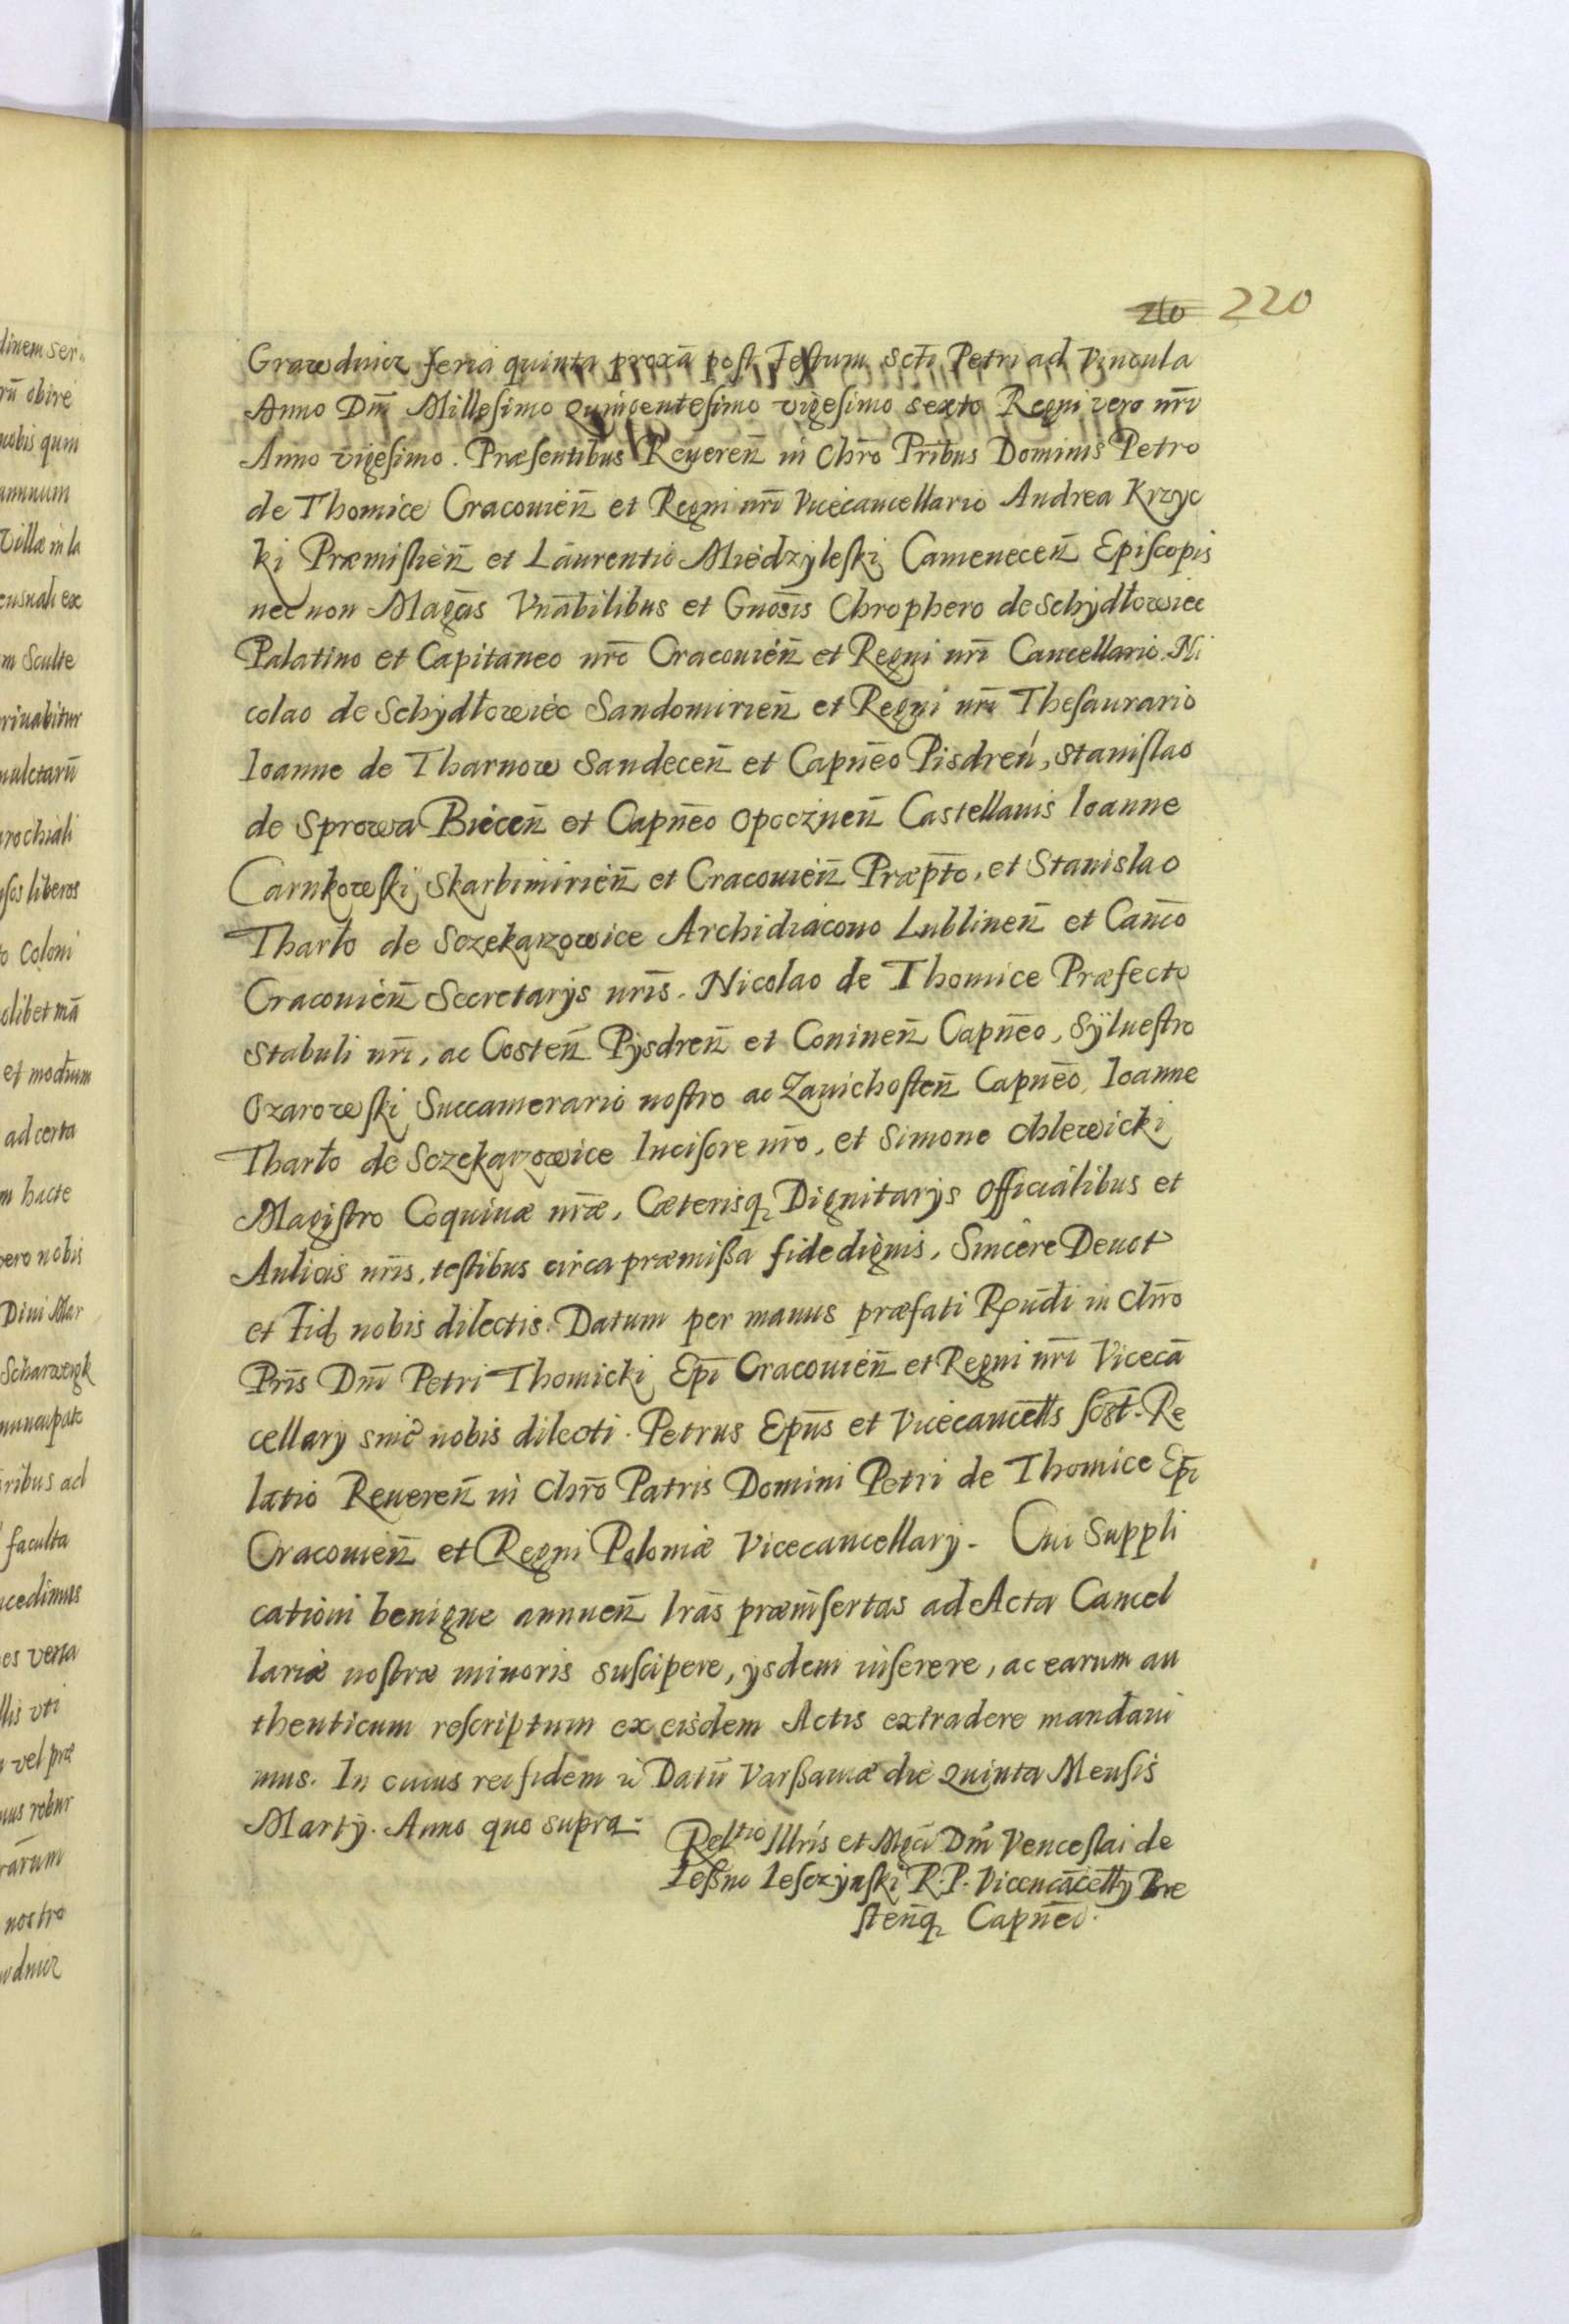 220
Grawdnicz feria quinta proxã post Festum Scti Petri ad Vincula
Anno Dm̃ Millesimo Quingentesimo vigesimo sexto Regni vero nr̃i
Anno vigesimo. Præsentibus Reueren̄ in Chrõ Pribus Dominis Petro
de Thomice Cracouien̄ et Regni nr̃i Vicecancellario Andrea Krzyc
ki Præmislien̄ et Laurentio Miedzyleski Camenecen̄ Episcopis
necnon Magcis Vnãbilibus et Gnosis Chrophero de Schydłowiec
Palatino et Capitaneo nr̃o Cracouien̄ et Regni nr̃i Cancellario. Ni
colao de Schydłowiec Sandomirien̄ et Regni nr̃i Thesaurario
Ioanne de Tharnow Sandecen̄ et Capnẽo Pisdreń, Stanislao
de Sprowa Biecen̄ et Capnẽo Opocznen̄ Castellanis Ioanne
Carnkowski Skarbimirien̄ et Cracouien̄ Præpto, et Stanislao
Tharło de Sczekarzowice Archidiacono Lublinen̄ et Canco
Cracouien̄ Secretarys nr̃is. Nicolao de Thomice Præfecto
Stabuli nr̃i, ac Costen̄ Pysdren̄ et Coninen̄ Capnẽo, Sÿluestro
Ozarowski Succamerario nostro ac Zauichosten̄ Capnẽo, Ioanne
Tharło de Sczekarzowice Incisore nr̃o, et Simone Chlewicki
Magistro Coquinæ nr̃æ, Cæterisq Dignitarys Officialibus et
Aulicis nr̃is, testibus circa præmißa fidedignis, Sincere Deuot
et Fid nobis dilectis. Datum per manus præfati Rṽndi in Chrõ
Pr̃is Dm̃ Petri Thomicki Ep̃i Cracouien̄ et Regni nr̃i Vicecã
cellary sinc̃ nobis dilecti. Petrus Ep̃us et Vicecancells sc̃st. Re
latio Reueren̄ in Chrõ Patris Domini Petri de Thomice Ep̃i
Cracouien̄ et Regni Poloniæ Vicecancellary. Cui Suppli
cationi benigne annuen̄ lrãs præinsertas ad Acta Cancel
lariæ nostræ minoris suscipere, ysdem inserere, ac earum au
thenticum rescriptum ex eisdem Actis extradere mandaui
mus. In cuius rei fidem Datũ Varßauiæ die Quinta Mensis
Martÿ. Anno quo supra.
Reltio Illris et Mgci Dm̃ Venceslai de
Leßno Lesczynski R.P. Vicecãcelly Bre
sten̄q Capnẽo.